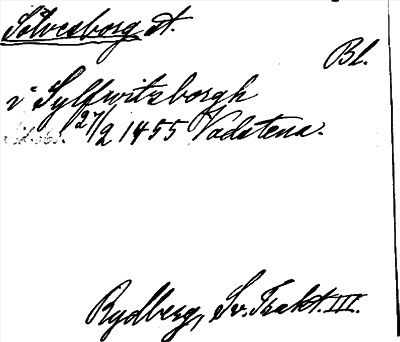 Sölvesborg st.
Bl.
i Sylfwitzborgh
27/2 1455 Vadstena.
Rydberg, Sv. Trakt. III.